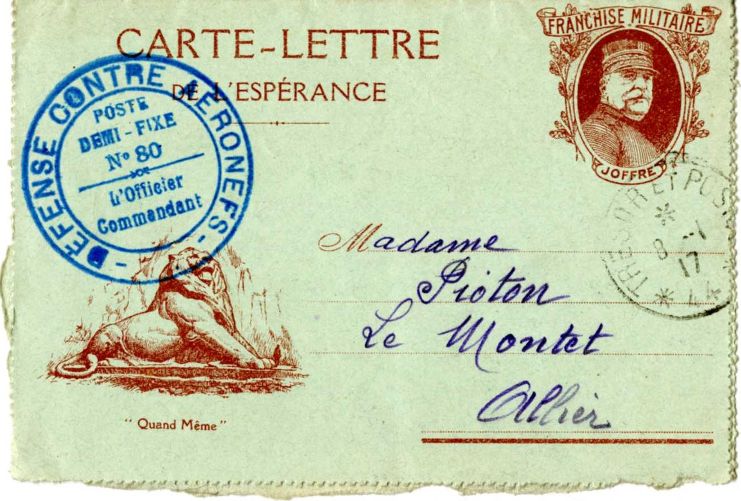 CARTE-LETTRE
DE L'ESPÉRANCE
FRANCHISE MILITAIRE
JOFFRE
- DÉFENSE CONTRE AERONEFS -
POSTE
DEMI-FIXE
No 80
L'Officier
Commandant
TRESOR ET POSTES
8 -1
17
Madame
Pioton
Le Montet
Allier
"Quand Même"